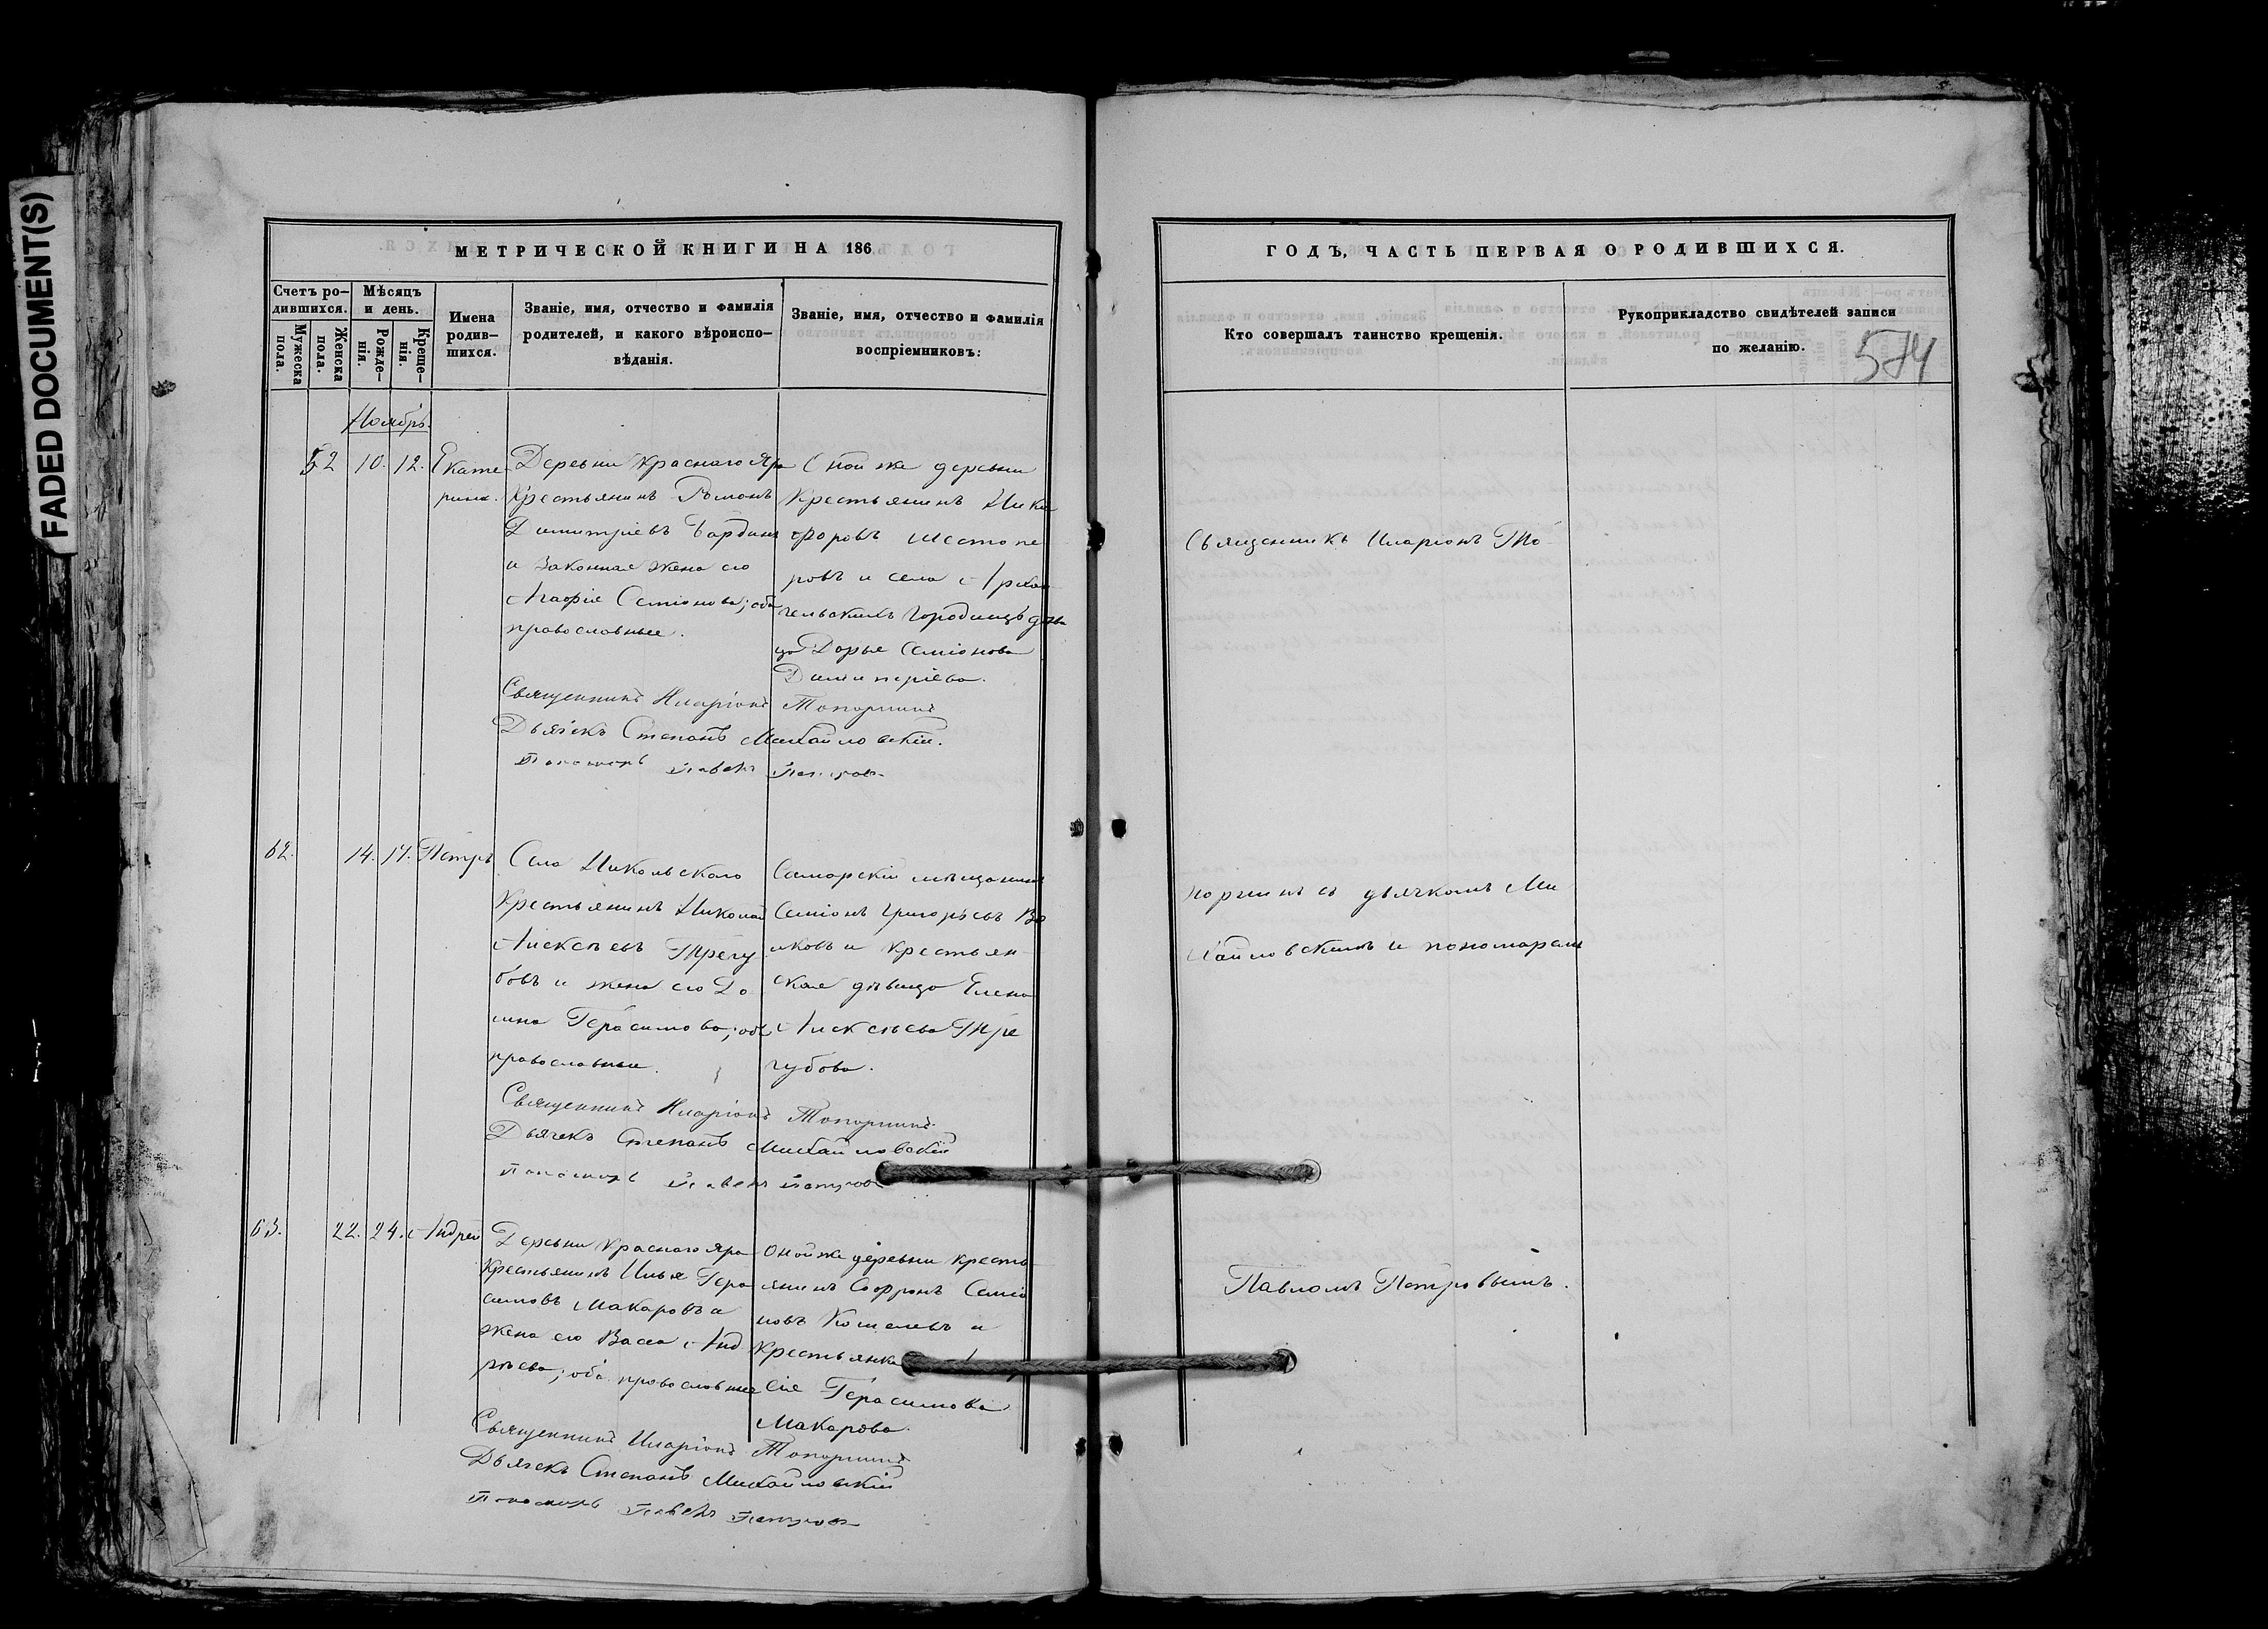 FADED DOCUMENT(S)
МЕТРИЧЕСКОЙ КНИГИ НА 186
Счетъ ро-
дившихся.
Мужеска
пола.
Женска
пола.
Мѣсяцъ
и день.
Рожде-
нія.
Креще-
нія.
Имена
родив-
шихся.
Званіе, имя, отчество и фамилія
родителей, и какого вѣроиспо-
вѣданія.
Званіе, имя, отчество и фамилія
воспріемниковъ:
Ноябрь.
52 10. 12.
Екате
рина.
Деревни Краснаго Яра
Крестьянинъ Романъ
Димитріевъ Бардинъ
и законная жена его
Агафія Семіонова; оба
православные.
Оной же деревни
Крестьянинъ Ники
форовъ Шестопе
ровъ и села Архан
гельскихъ Городищъ дѣви
ца Дарья Семіонова
Димитріева.
Священникъ Иларіонъ Топорнинъ
Дьячекъ Степанъ Михайловскій.
Пономарь Павелъ Петровъ
62. 14. 17. Петръ
Села Никольскаго
Крестьянинъ Николай
Алексѣевъ Трегу
бовъ и жена его До
мна Герасимова; оба
православные.
Самарскій мѣщанинъ
Семіонъ Григорьевъ Во
лковъ и крестьян
ская дѣвица Елена
Алексѣева Тре
губова.
Священникъ Иларіонъ Топорнинъ
Дьячекъ Степанъ Михайловскій
Пономарь Павелъ Петровъ
63. 22. 24. Андрей
Деревни Краснаго Яра
Крестьянинъ Илья Гера
симовъ Макаровъ и
жена его Васса Анд
рѣева; оба православные
Оной же деревни кресть
янинъ Софронъ Семіо
новъ Кошелевъ и
Крестьянка
сія Герасимова
Макарова.
Священникъ Иларіонъ Топорнинъ
Дьячекъ Степанъ Михайловскій
Пономарь Павелъ Петровъ
ГОДЪ, ЧАСТЬ ПЕРВАЯ О РОДИВШИХСЯ.
Кто совершалъ таинство крещенія.
Рукоприкладство свидѣтелей записи
по желанію.
574
Священникъ Иларіонъ То
порнинъ съ дьячкомъ Ми
хайловскимъ и пономаремъ
Павломъ Петровымъ.